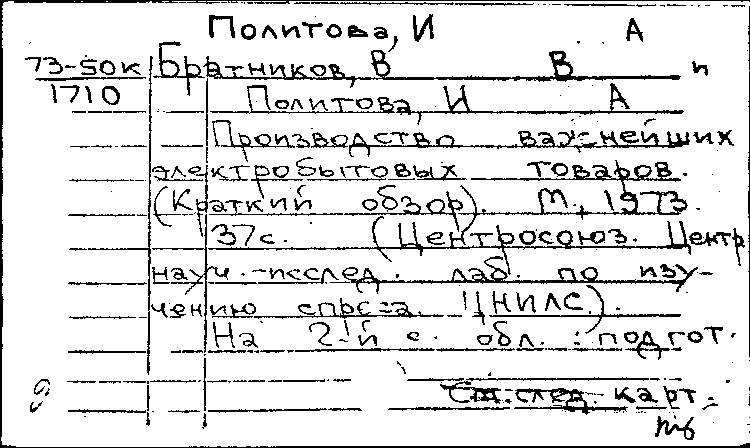 Политова, И А
73-50к Братников, В В и
1710 Политова, И А
Производство важнейших
электробытовых товаров.
(Краткий обзор). М., 1973.
37с. (Центросоюз. Центр
науч.-исслед. лаб. по изу-
чению спроса. ЦНИЛС).
На 2-й с. обл.: подгот.
См. след. карт.